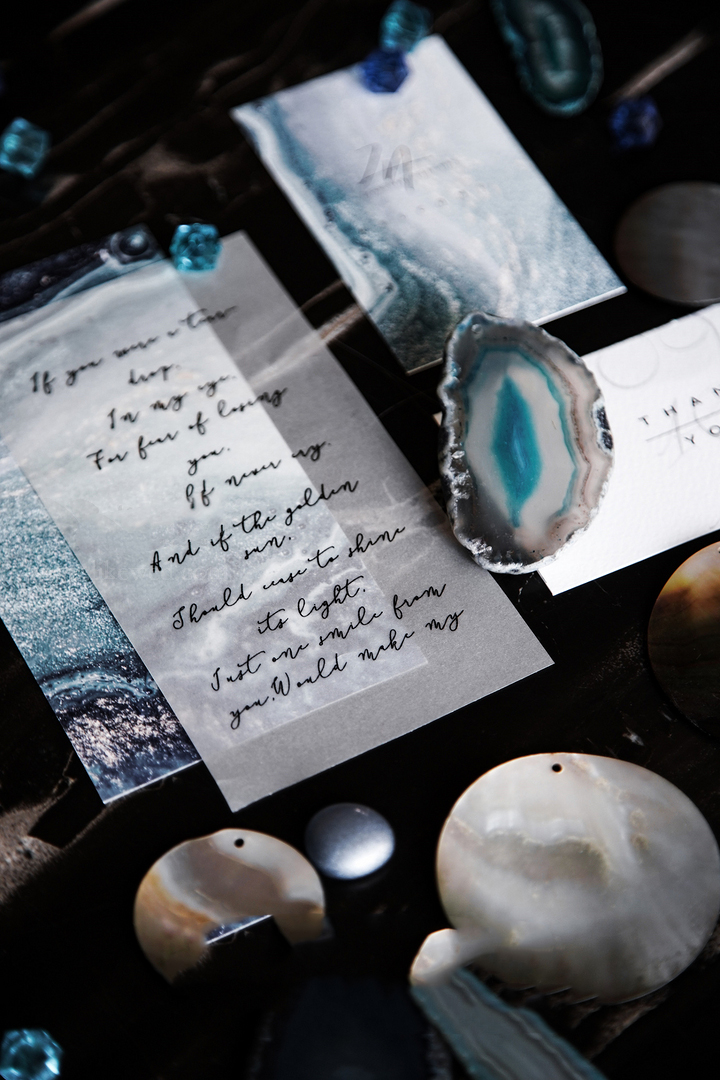 If you were a tear
drop.
In my eye.
For fear of losing
you.
If never cry.
And if the golden
sun.
Should cease to shine
its light,
Just one smile from
you.Would make my
THAN
YO